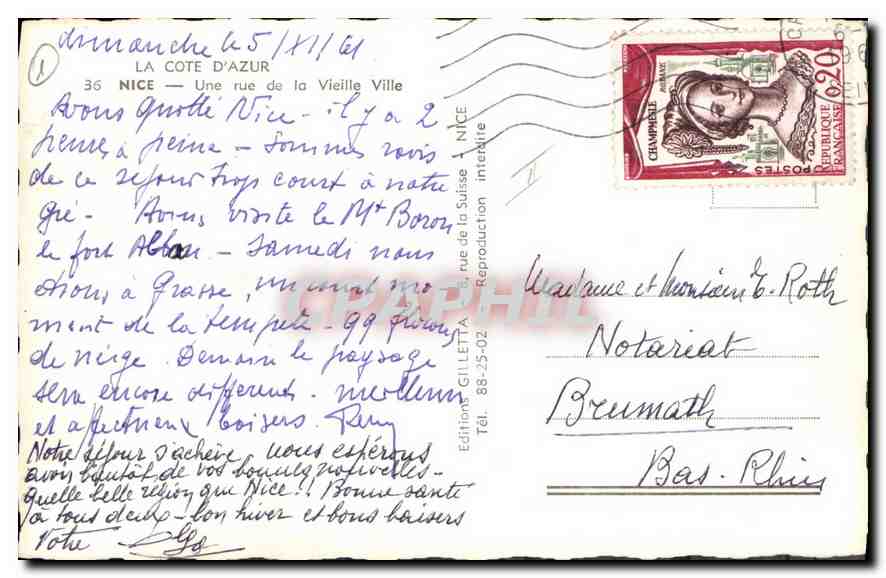 dimanche le 5/XI/61
1
LA COTE D'AZUR
36 NICE — Une rue de la Vieille Ville
Avons quitté Nice - il y a 2
heures à peine - Sommes ravis
de ce séjour trop court à notre
gré - Avons visité le Mt Boron
le fort Alban - Samedi nous
étions à Grasse, un court mo-
ment de la tempête - qq flocons
de neige. Demain le paysage
sera encore différent - meilleurs
et affectueux baisers. Remy
Notre séjour s'achève - nous espérons
avoir bientôt de vos bonnes nouvelles -
quelle belle région que Nice!! Bonne santé
à tous deux - bon hiver et bons baisers
Votre
Editions GILLETTA, 8, rue de la Suisse - NICE
Tél. 88-25-02 Reproduction interdite
II
CHAMPMESLÉ
ROXANE
0,20
REPUBLIQUE
FRANÇAISE
POSTES
Madame et Monsieur E. Roth
Notariat
Brumath
Bas-Rhin
CPAPHIL